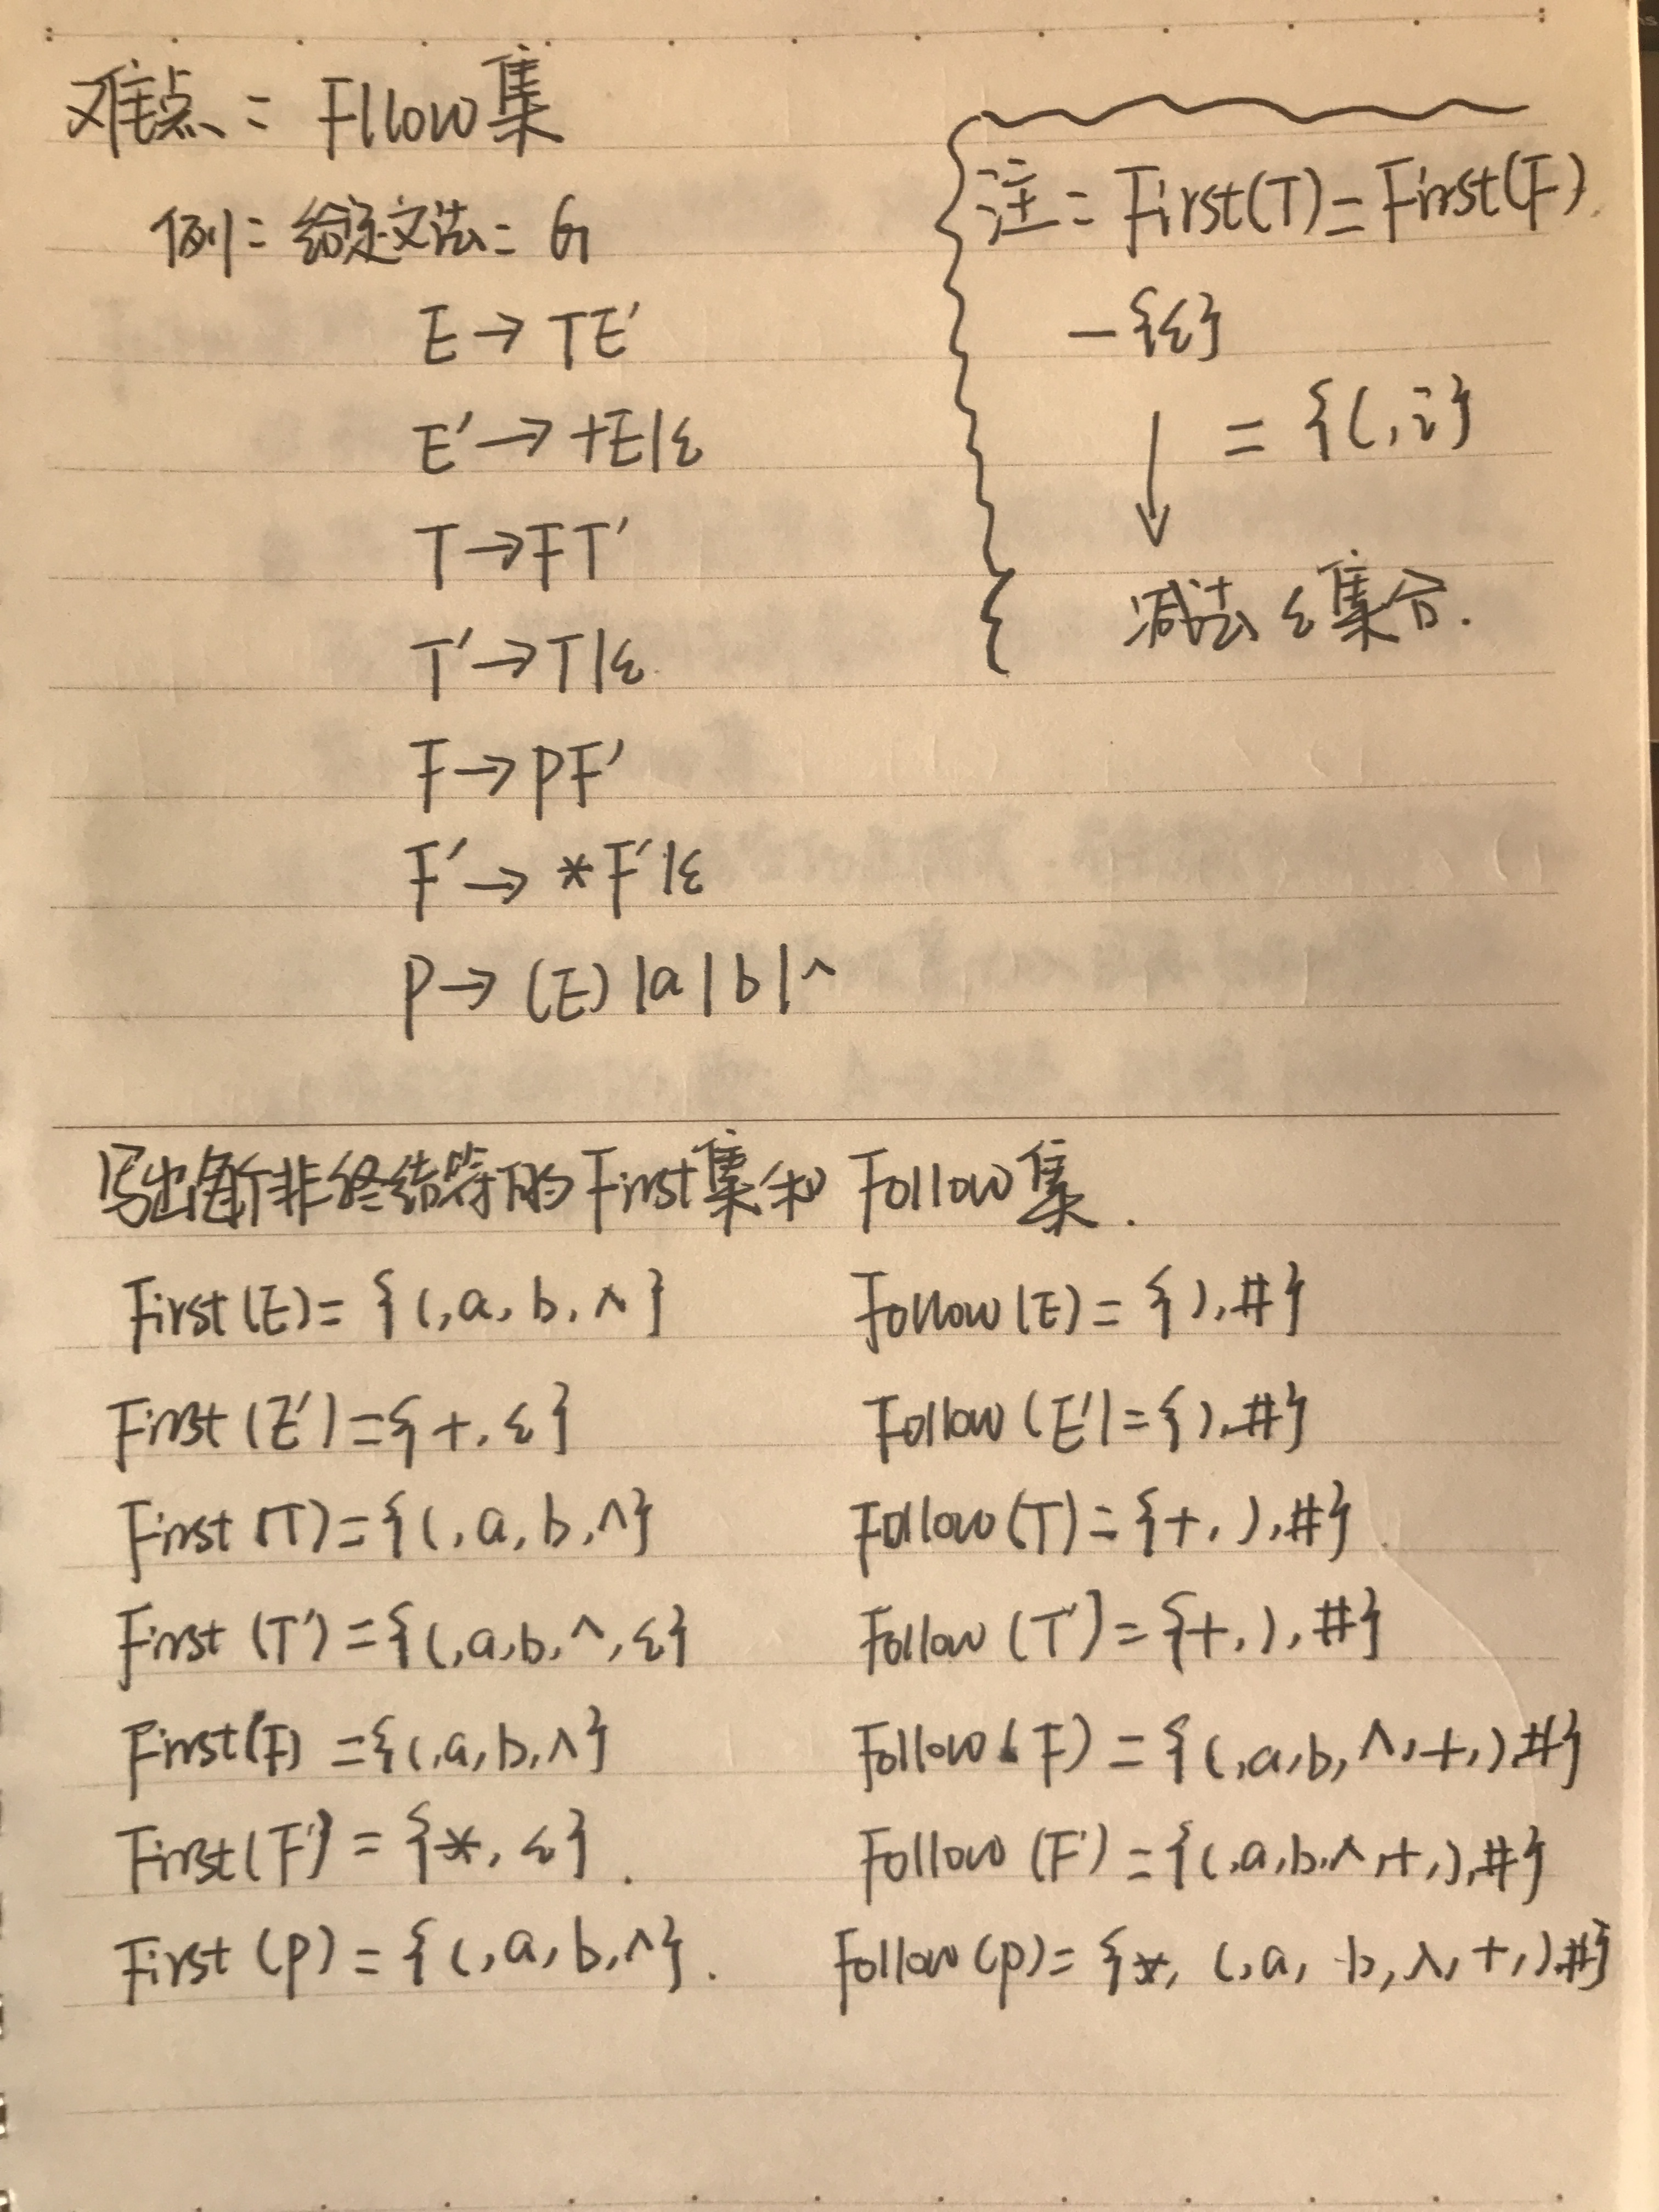 难点: Fllow集
例: 给定文法: G
E → TE'
E' → +E|ε
T → FT'
T' → T|ε
F → PF'
F' → *F'|ε
P → (E)|a|b|^
注: First(T)=First(F)
-{ε}
= {(,i}
↓
减法 ε集合.
写出每个非终结符的First集和 Follow集.
First(E)= {(,a,b,^} Follow(E)= {),#}
First(E')={+,ε} Follow(E')={),#}
First(T)={(,a,b,^} Follow(T)={+,),#}
First(T')={(,a,b,^,ε} Follow(T')={+,),#}
First(F)={(,a,b,^} Follow(F)={(,a,b,^,+,),#}
First(F')={*,ε}. Follow(F')={(,a,b,^,+,),#}
First(P)={(,a,b,^}. Follow(P)={*,(,a,b,^,+,),#}